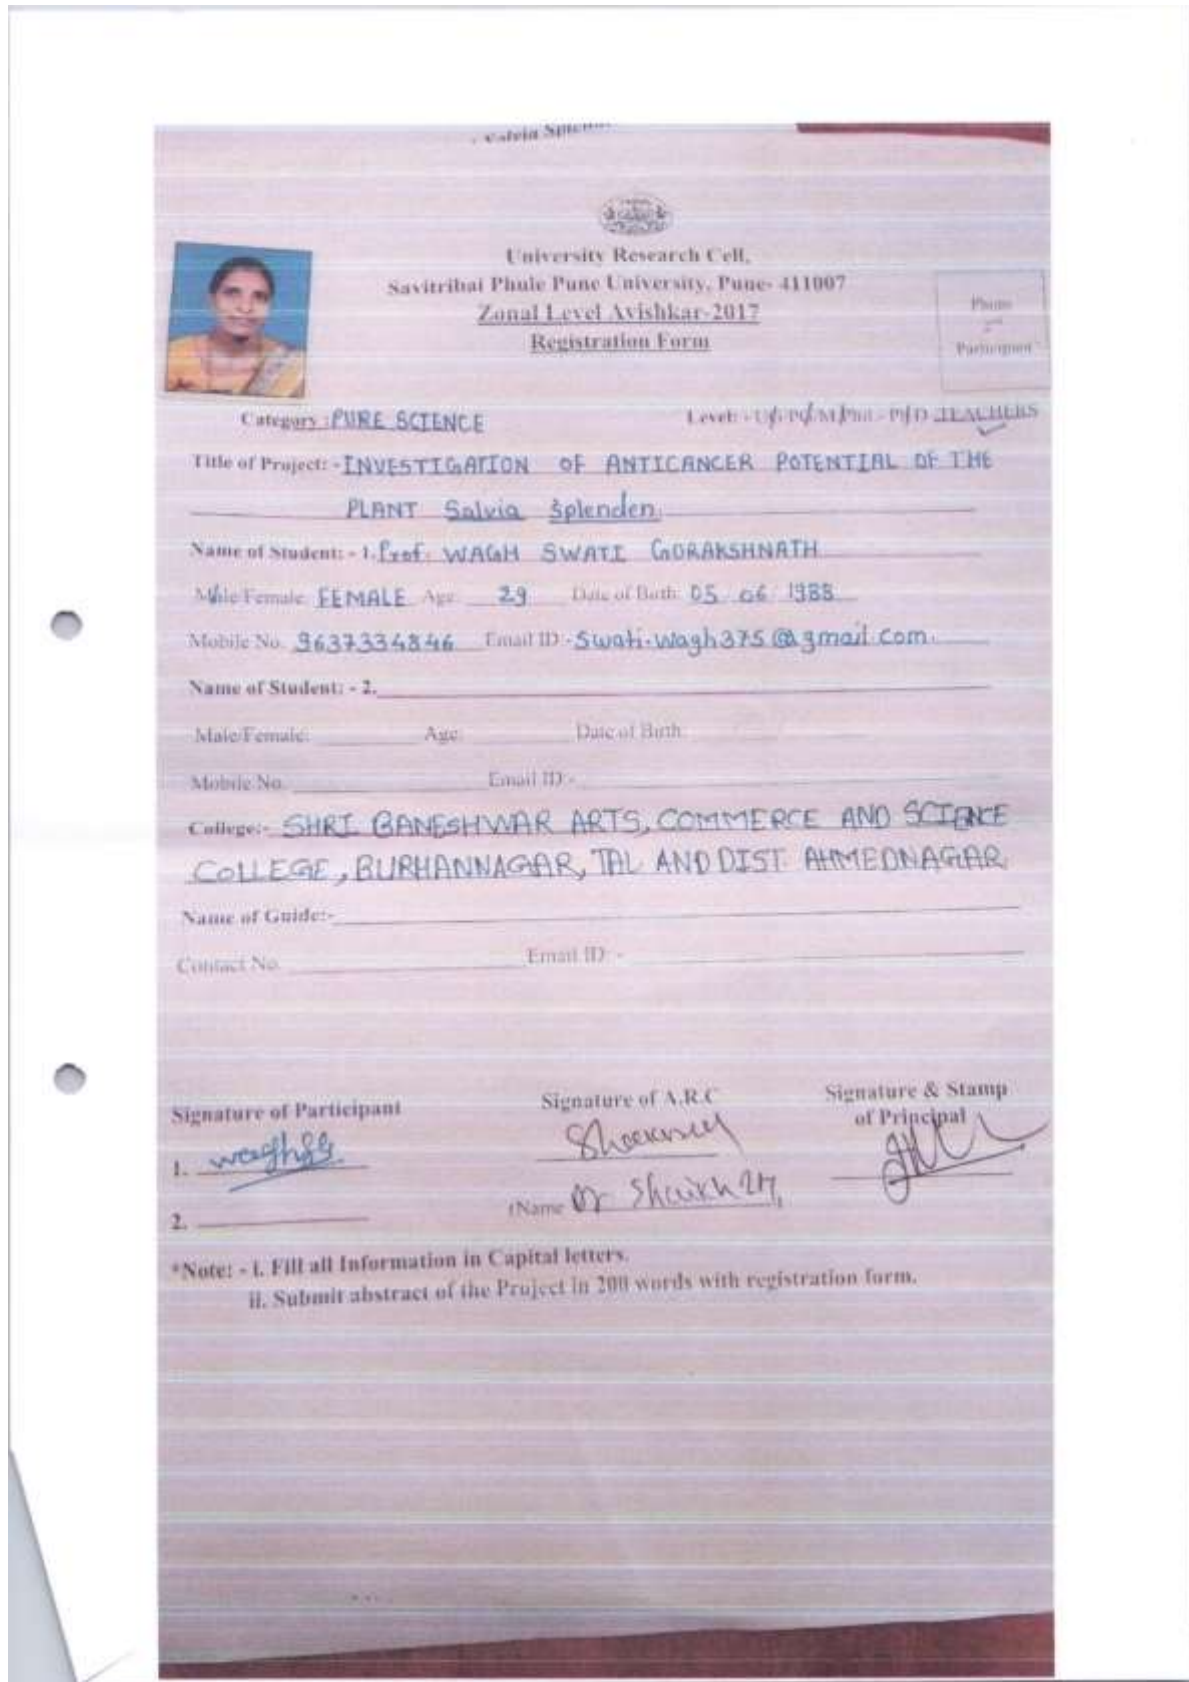 University Research Cell,
Savitribai Phule Pune University, Pune- 411007
Zonal Level Avishkar-2017
Registration Form
Photo
2nd
Participant
Category : PURE SCIENCE Level: - UG/PG/M/Phil - P/D TEACHERS
Title of Project: - INVESTIGATION OF ANTICANCER POTENTIAL OF THE
PLANT Salvia Splenden.
Name of Student: - 1. Prof. WAGH SWATI GORAKSHNATH
Male/Female: FEMALE Age: 29 Date of Birth: 05 06 1988
Mobile No. 9637334846 Email ID:- Swati.wagh375@gmail.com.
Name of Student: - 2.
Male/Female: Age: Date of Birth:
Mobile No. Email ID:-
College:- SHRI BANESHWAR ARTS, COMMERCE AND SCIENCE
COLLEGE, BURHANNAGAR, TAL AND DIST. AHMEDNAGAR
Name of Guide:-
Contact No. Email ID: -
Signature of Participant Signature of A.R.C Signature & Stamp
of Principal
1.
(Name Dr Shaikh
2.
*Note: - i. Fill all Information in Capital letters.
ii. Submit abstract of the Project in 200 words with registration form.